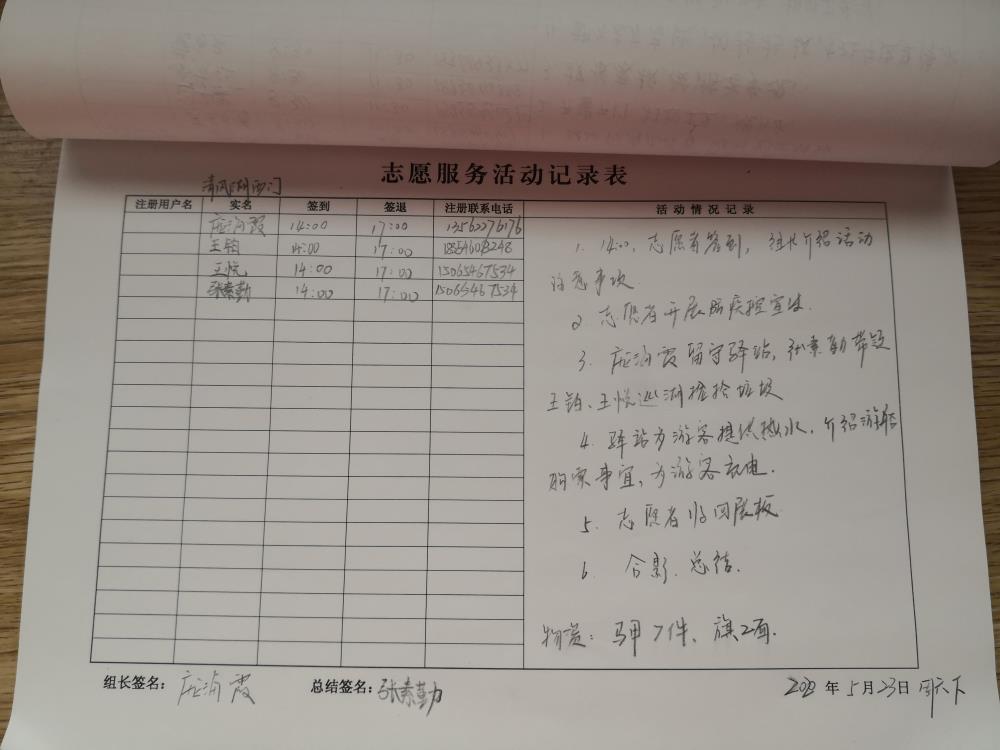 志愿服务活动记录表
清风湖西门
注册用户名 实名 签到 签退 注册联系电话 活动情况记录
14:00 17:00 13562276176
王铂 14:00 17:00
王悦 14:00 17:00 15065467534
张素勤 14:00 17:00 15065467534
1. 14:00, 志愿者签到, 组长介绍活动
注意事项
2 志愿者开展防疾控宣传.
3. 庄海霞留守驿站, 张素勤带领
王铂、王悦巡湖捡拾垃圾
4. 驿站为游客提供热水, 介绍游船
购票事宜, 为游客充电.
5. 志愿者收回展板
6. 合影. 总结.
物资: 马甲7件、旗2面.
组长签名: 总结签名: 张素勤 年5月23日 周六下